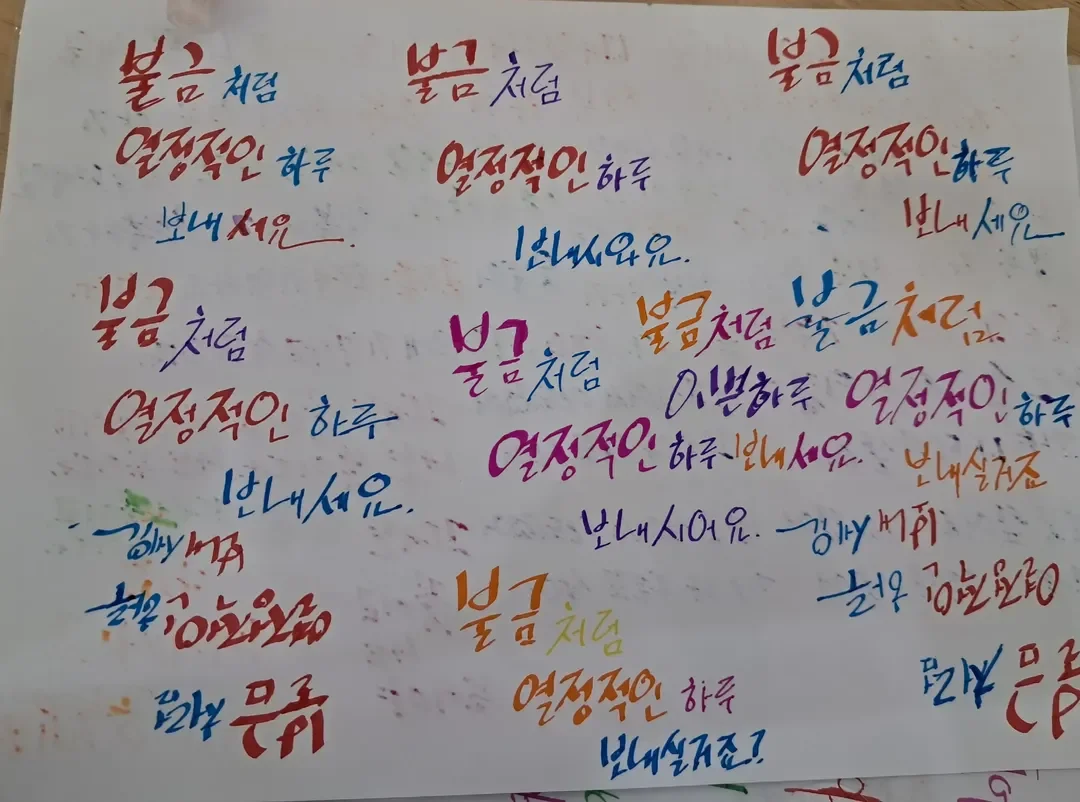 불금처럼
열정적인 하루
보내세요.
불금처럼
열정적인 하루
보내시와요.
불금처럼
열정적인 하루
보내세요
불금처럼
열정적인 하루
보내세요.
불금처럼
열정적인 하루
보내시어요.
불금처럼
이쁜하루
보내세요.
불금처럼
열정적인 하루
보내실거죠
불금처럼
열정적인 하루
보내실거죠?
불금처럼
열정적인
불금처럼
열정적인